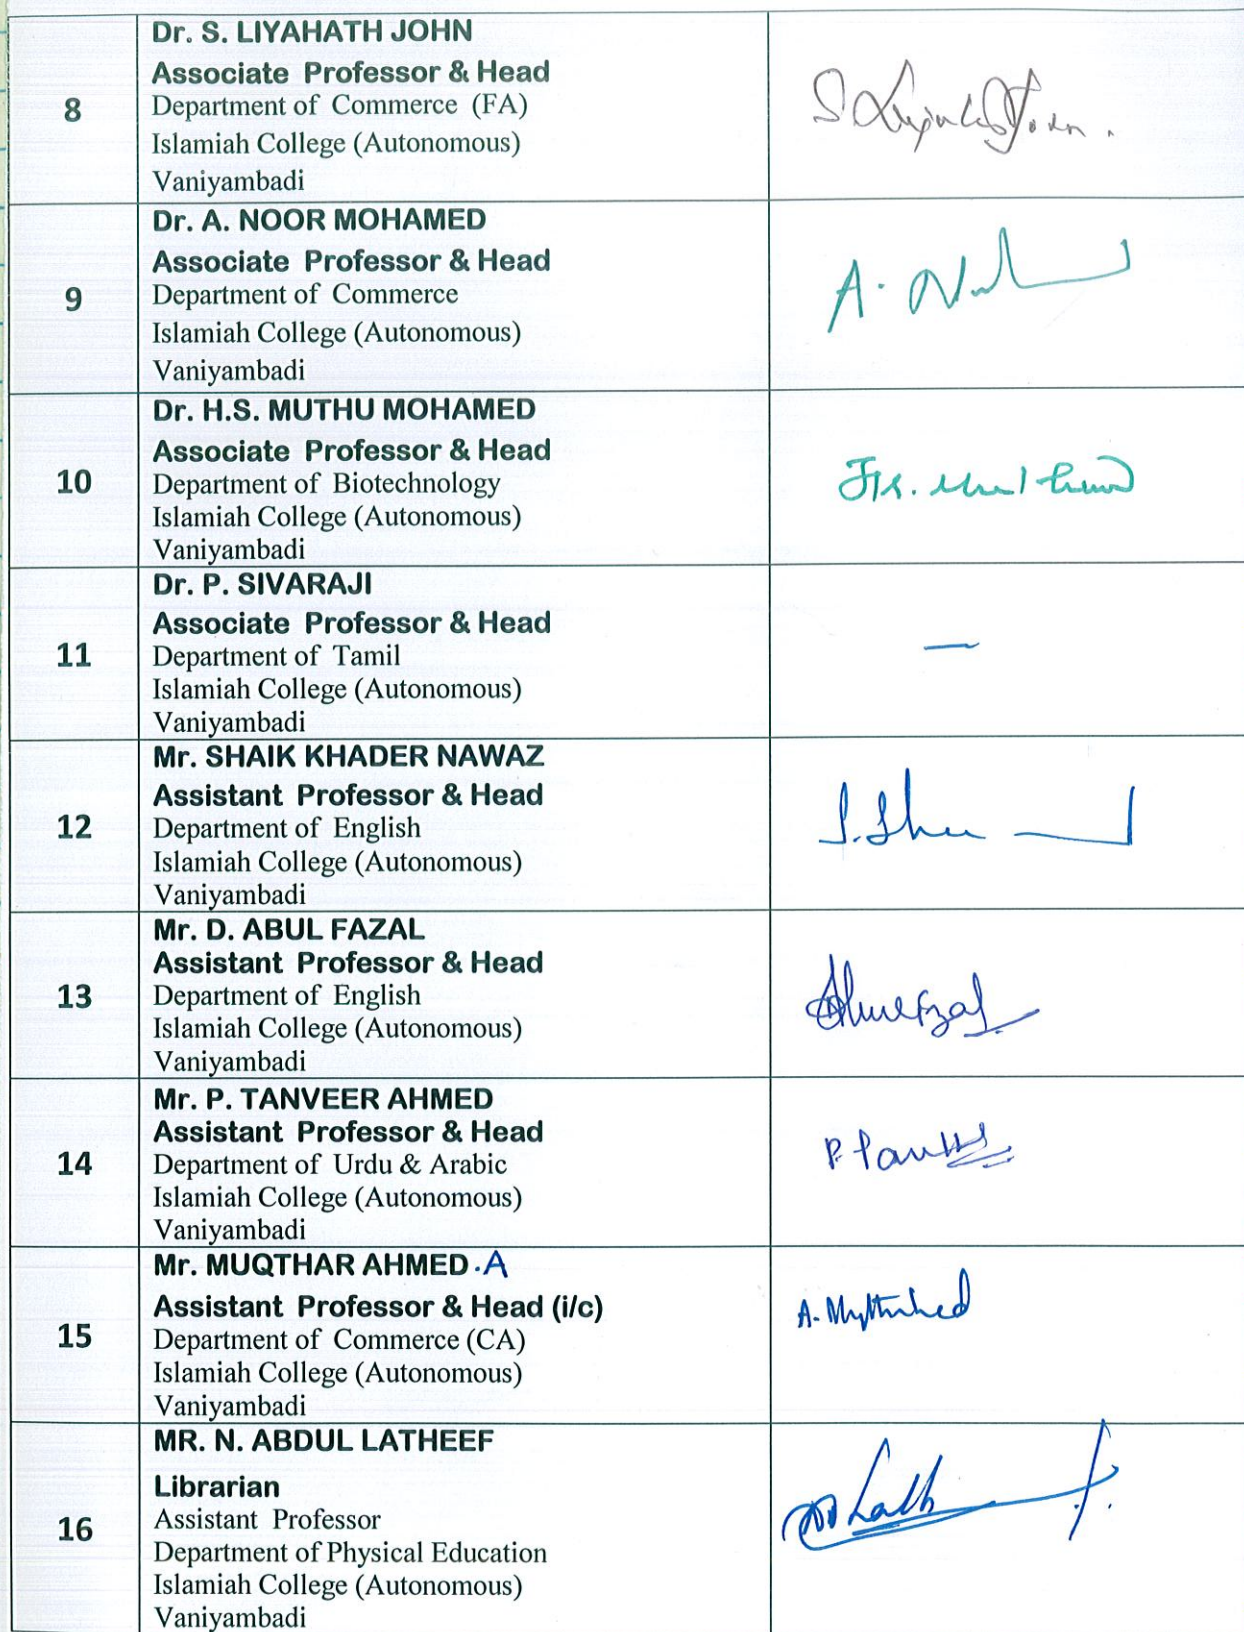 Dr. S. LIYAHATH JOHN
Associate Professor & Head
8
Department of Commerce (FA)
Islamiah College (Autonomous)
Vaniyambadi
Dr. A. NOOR MOHAMED
Associate Professor & Head
9
Department of Commerce
Islamiah College (Autonomous)
Vaniyambadi
A.
Dr. H.S. MUTHU MOHAMED
Associate Professor & Head
10
Department of Biotechnology
Islamiah College (Autonomous)
Vaniyambadi
Dr. P. SIVARAJI
Associate Professor & Head
11
Department of Tamil
Islamiah College (Autonomous)
Vaniyambadi
—
Mr. SHAIK KHADER NAWAZ
Assistant Professor & Head
12
Department of English
Islamiah College (Autonomous)
Vaniyambadi
Mr. D. ABUL FAZAL
Assistant Professor & Head
13
Department of English
Islamiah College (Autonomous)
Vaniyambadi
Mr. P. TANVEER AHMED
Assistant Professor & Head
14
Department of Urdu & Arabic
Islamiah College (Autonomous)
Vaniyambadi
Mr. MUQTHAR AHMED .A
Assistant Professor & Head (i/c)
15
Department of Commerce (CA)
Islamiah College (Autonomous)
Vaniyambadi
A.
MR. N. ABDUL LATHEEF
Librarian
16
Assistant Professor
Department of Physical Education
Islamiah College (Autonomous)
Vaniyambadi